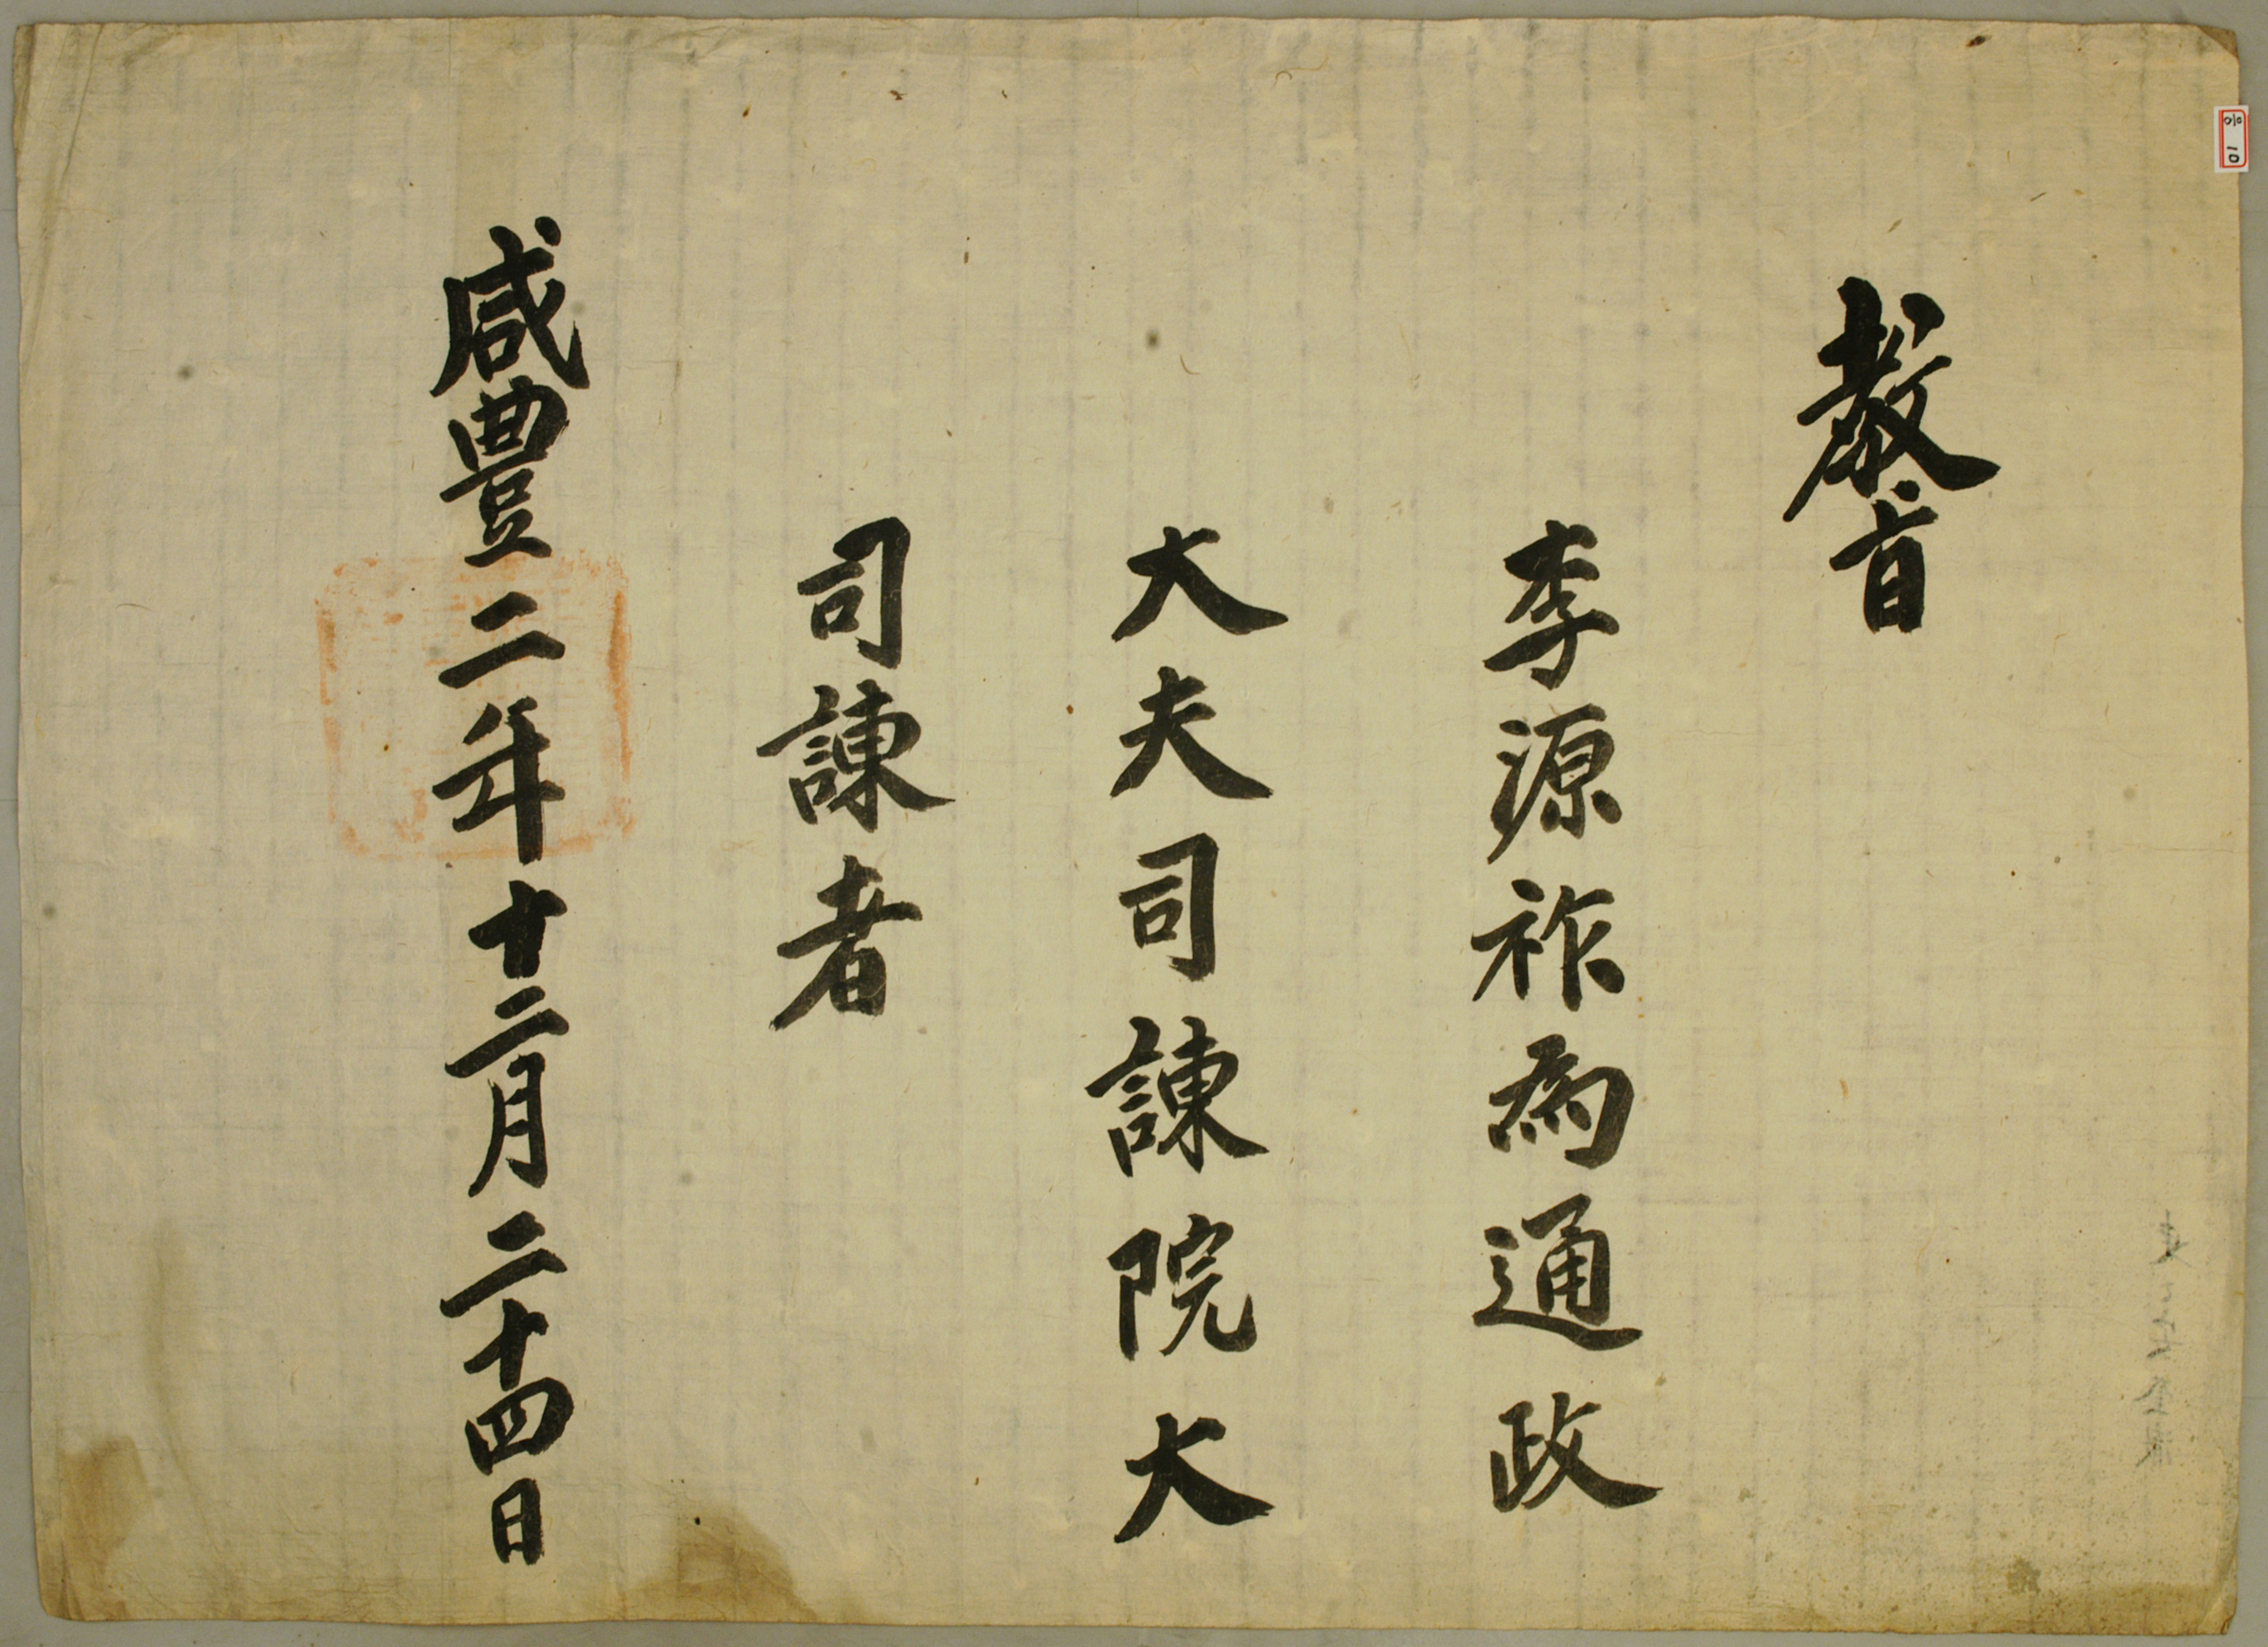 教旨
李源祚爲通政
大夫司諫院大
司諫者
咸豐二年十二月二十四日
10